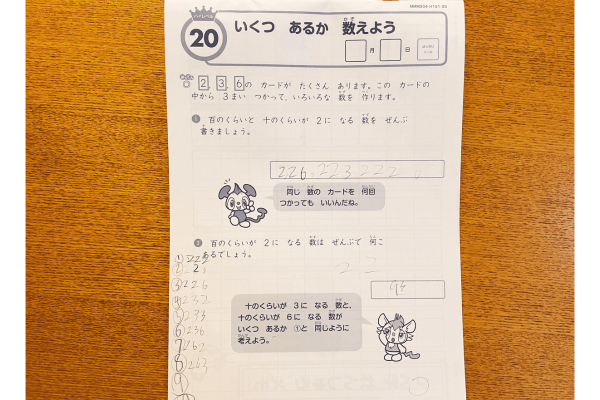 ハイレベル
20
いくつ あるか 数えよう
月 日
2, 3, 6の カードが たくさん あります。この カードの
中から 3まい つかって、いろいろな 数を 作ります。
① 百のくらいと 十のくらいが 2に なる 数を ぜんぶ
書きましょう。
226 223 222
同じ 数の カードを 何回
つかっても いいんだね。
② 百のくらいが 2に なる 数は ぜんぶで 何こ
あるでしょう。
2 2
① 222
② 22
③ 226
④ 232
⑤ 233
⑥ 236
⑦ 262
⑧ 263
⑨
十のくらいが 3に なる 数と、
十のくらいが 6に なる 数が
いくつ あるか ①と 同じように
考えよう。